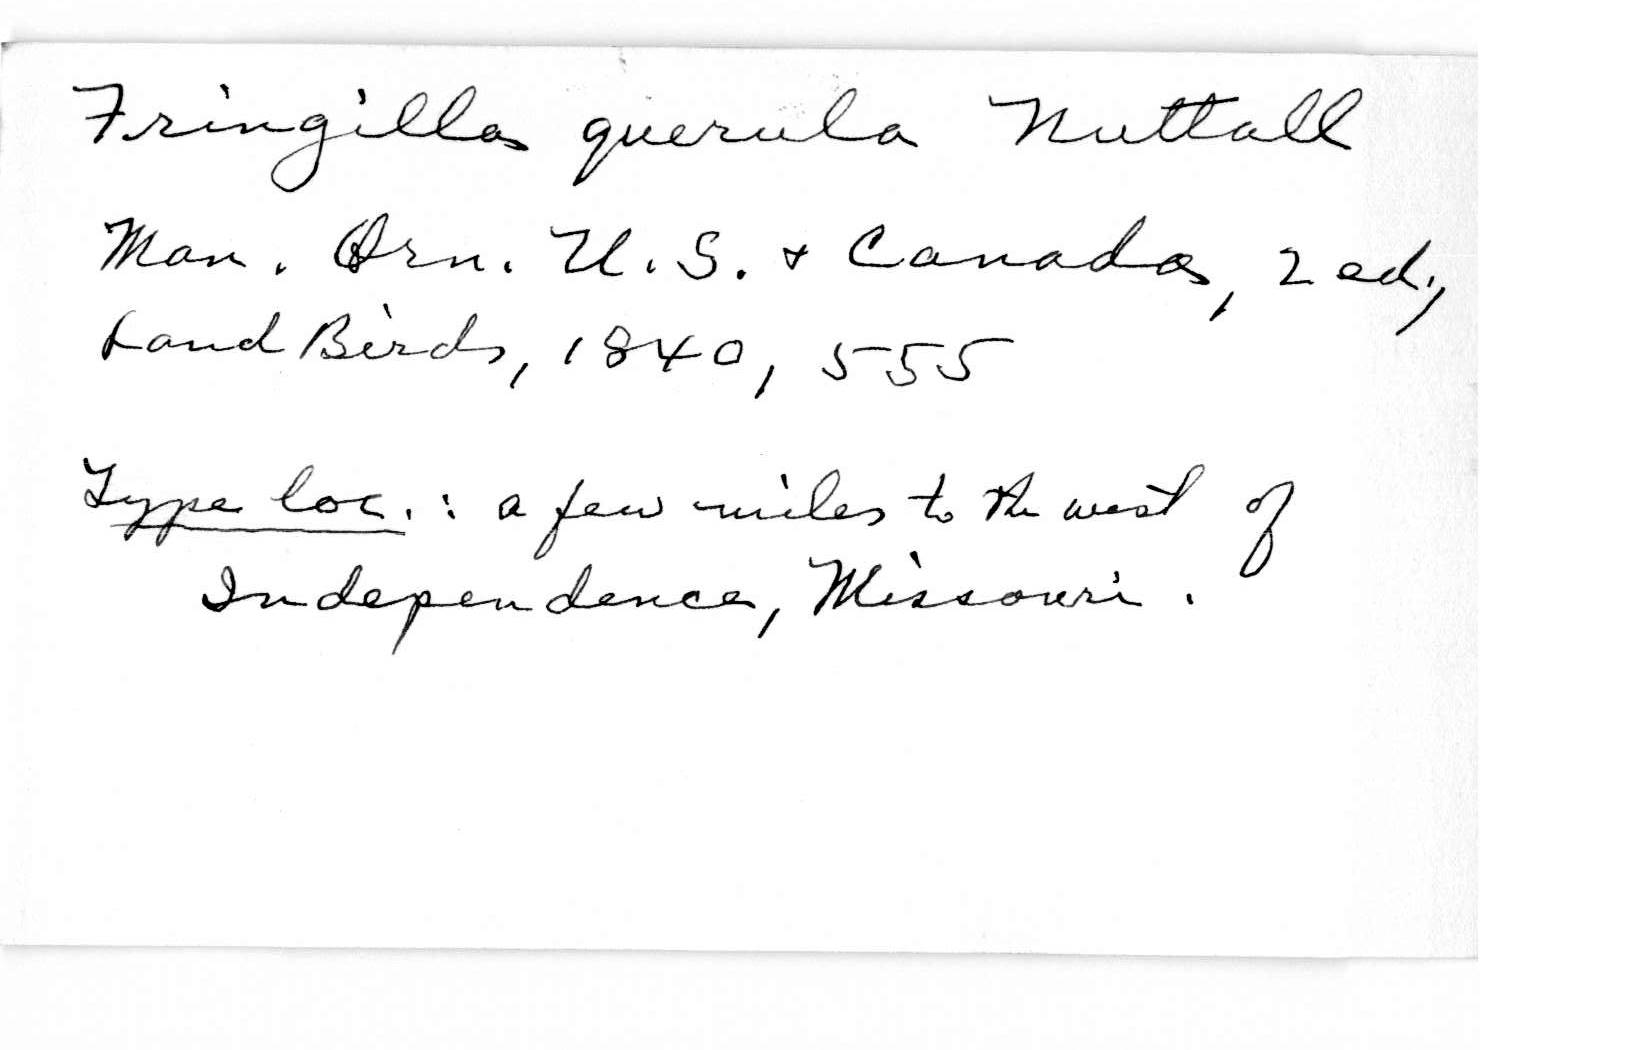 Fringilla querula Nuttall
Man. Orn. U.S. & Canada, 2 ed.,
Land Birds, 1840, 555
Type loc.: a few miles to the west of
Independence, Missouri.